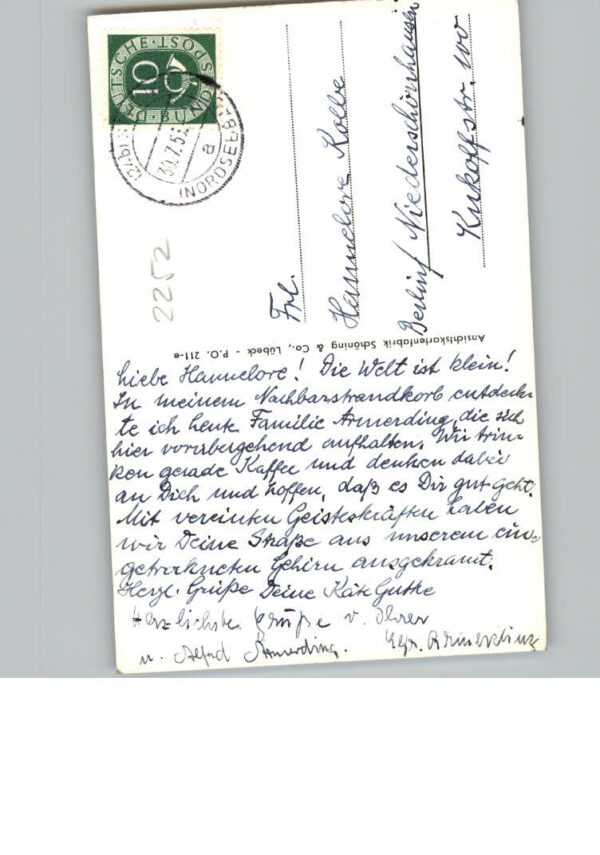 DEUTSCHE · BUNDESPOST
10
(24b)
30.7.53
a
(NORDSEEBAD)
2252
Frl.
Hannelore Kolbe
Berlin/ Niederschönhausen
Kuckhoffstr.
Ansichtskartenfabrik Schöning & Co., Lübeck - P.O. 211-e
Liebe Hannelore! Die Welt ist klein!
In meinem Nachbarstrandkorb entdeck-
te ich heute Familie Armerding, die sich
hier vorübergehend aufhalten. Wir trin-
ken gerade Kaffee und denken dabei
an Dich und hoffen, daß es Dir gut geht.
Mit vereinten Geisteskräften haben
wir Deine Straße aus unserem ein-
getrockneten Gehirn ausgekramt.
Herzl. Grüße Deine Käte Guthe
Herzlichste Grüße v. Ihrer
u. Alfred Armerding.